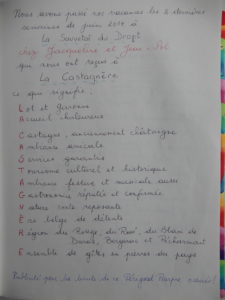 Nous avons passé nos vacances les 2 dernières
semaines de juin 2010 à
La Sauvetat du Dropt
chez Jacqueline et Jean-Pol
qui nous ont reçus à
La Castagnère
ce qui signifie :
Lot et Garonne
Accueil chaleureux
Castagne, anciennement châtaigne
Ambiance amicale
Services garantis
Tourisme culturel et historique
Ambiance festive et musicale aussi
Gastronomie réputée et confirmée
Nature verte reposante
Ere belge de détente
Région du Rouge, du Rosé, du Blanc de
Duras, Bergerac et Pécharmant
Ensemble de gîtes en pierres du pays
Publicité pour les bords de ce Périgord Pourpre